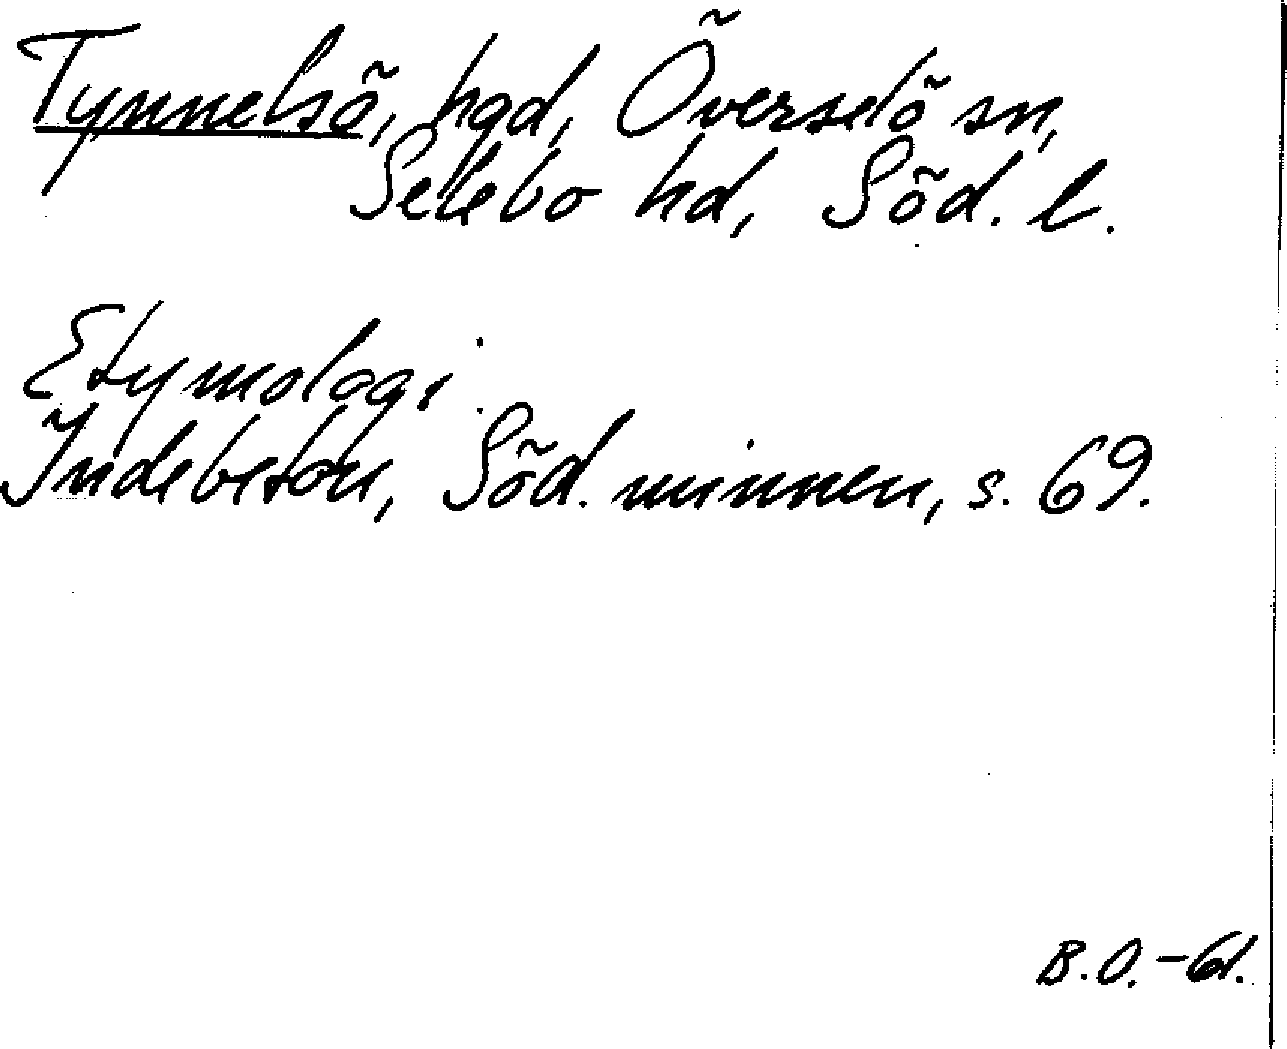 Tynnelsö, hgd, Överselö sn,
Selebo hd, Söd. l.
Etymologi:
Indebetou, Söd. minnen, s. 69.
B.O.-61.